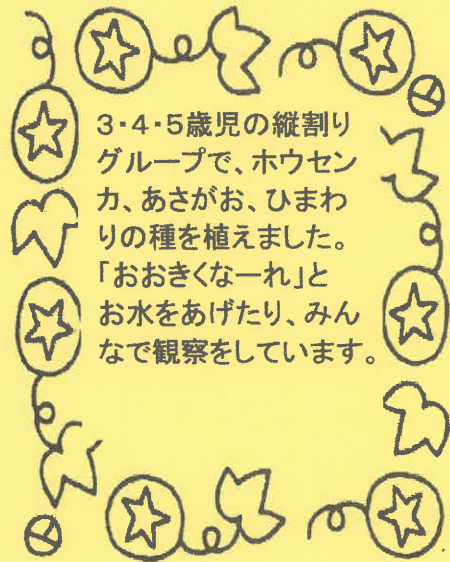 3・4・5歳児の縦割り
グループで、ホウセン
カ、あさがお、ひまわ
りの種を植えました。
「おおきくなーれ」と
お水をあげたり、みん
なで観察をしています。